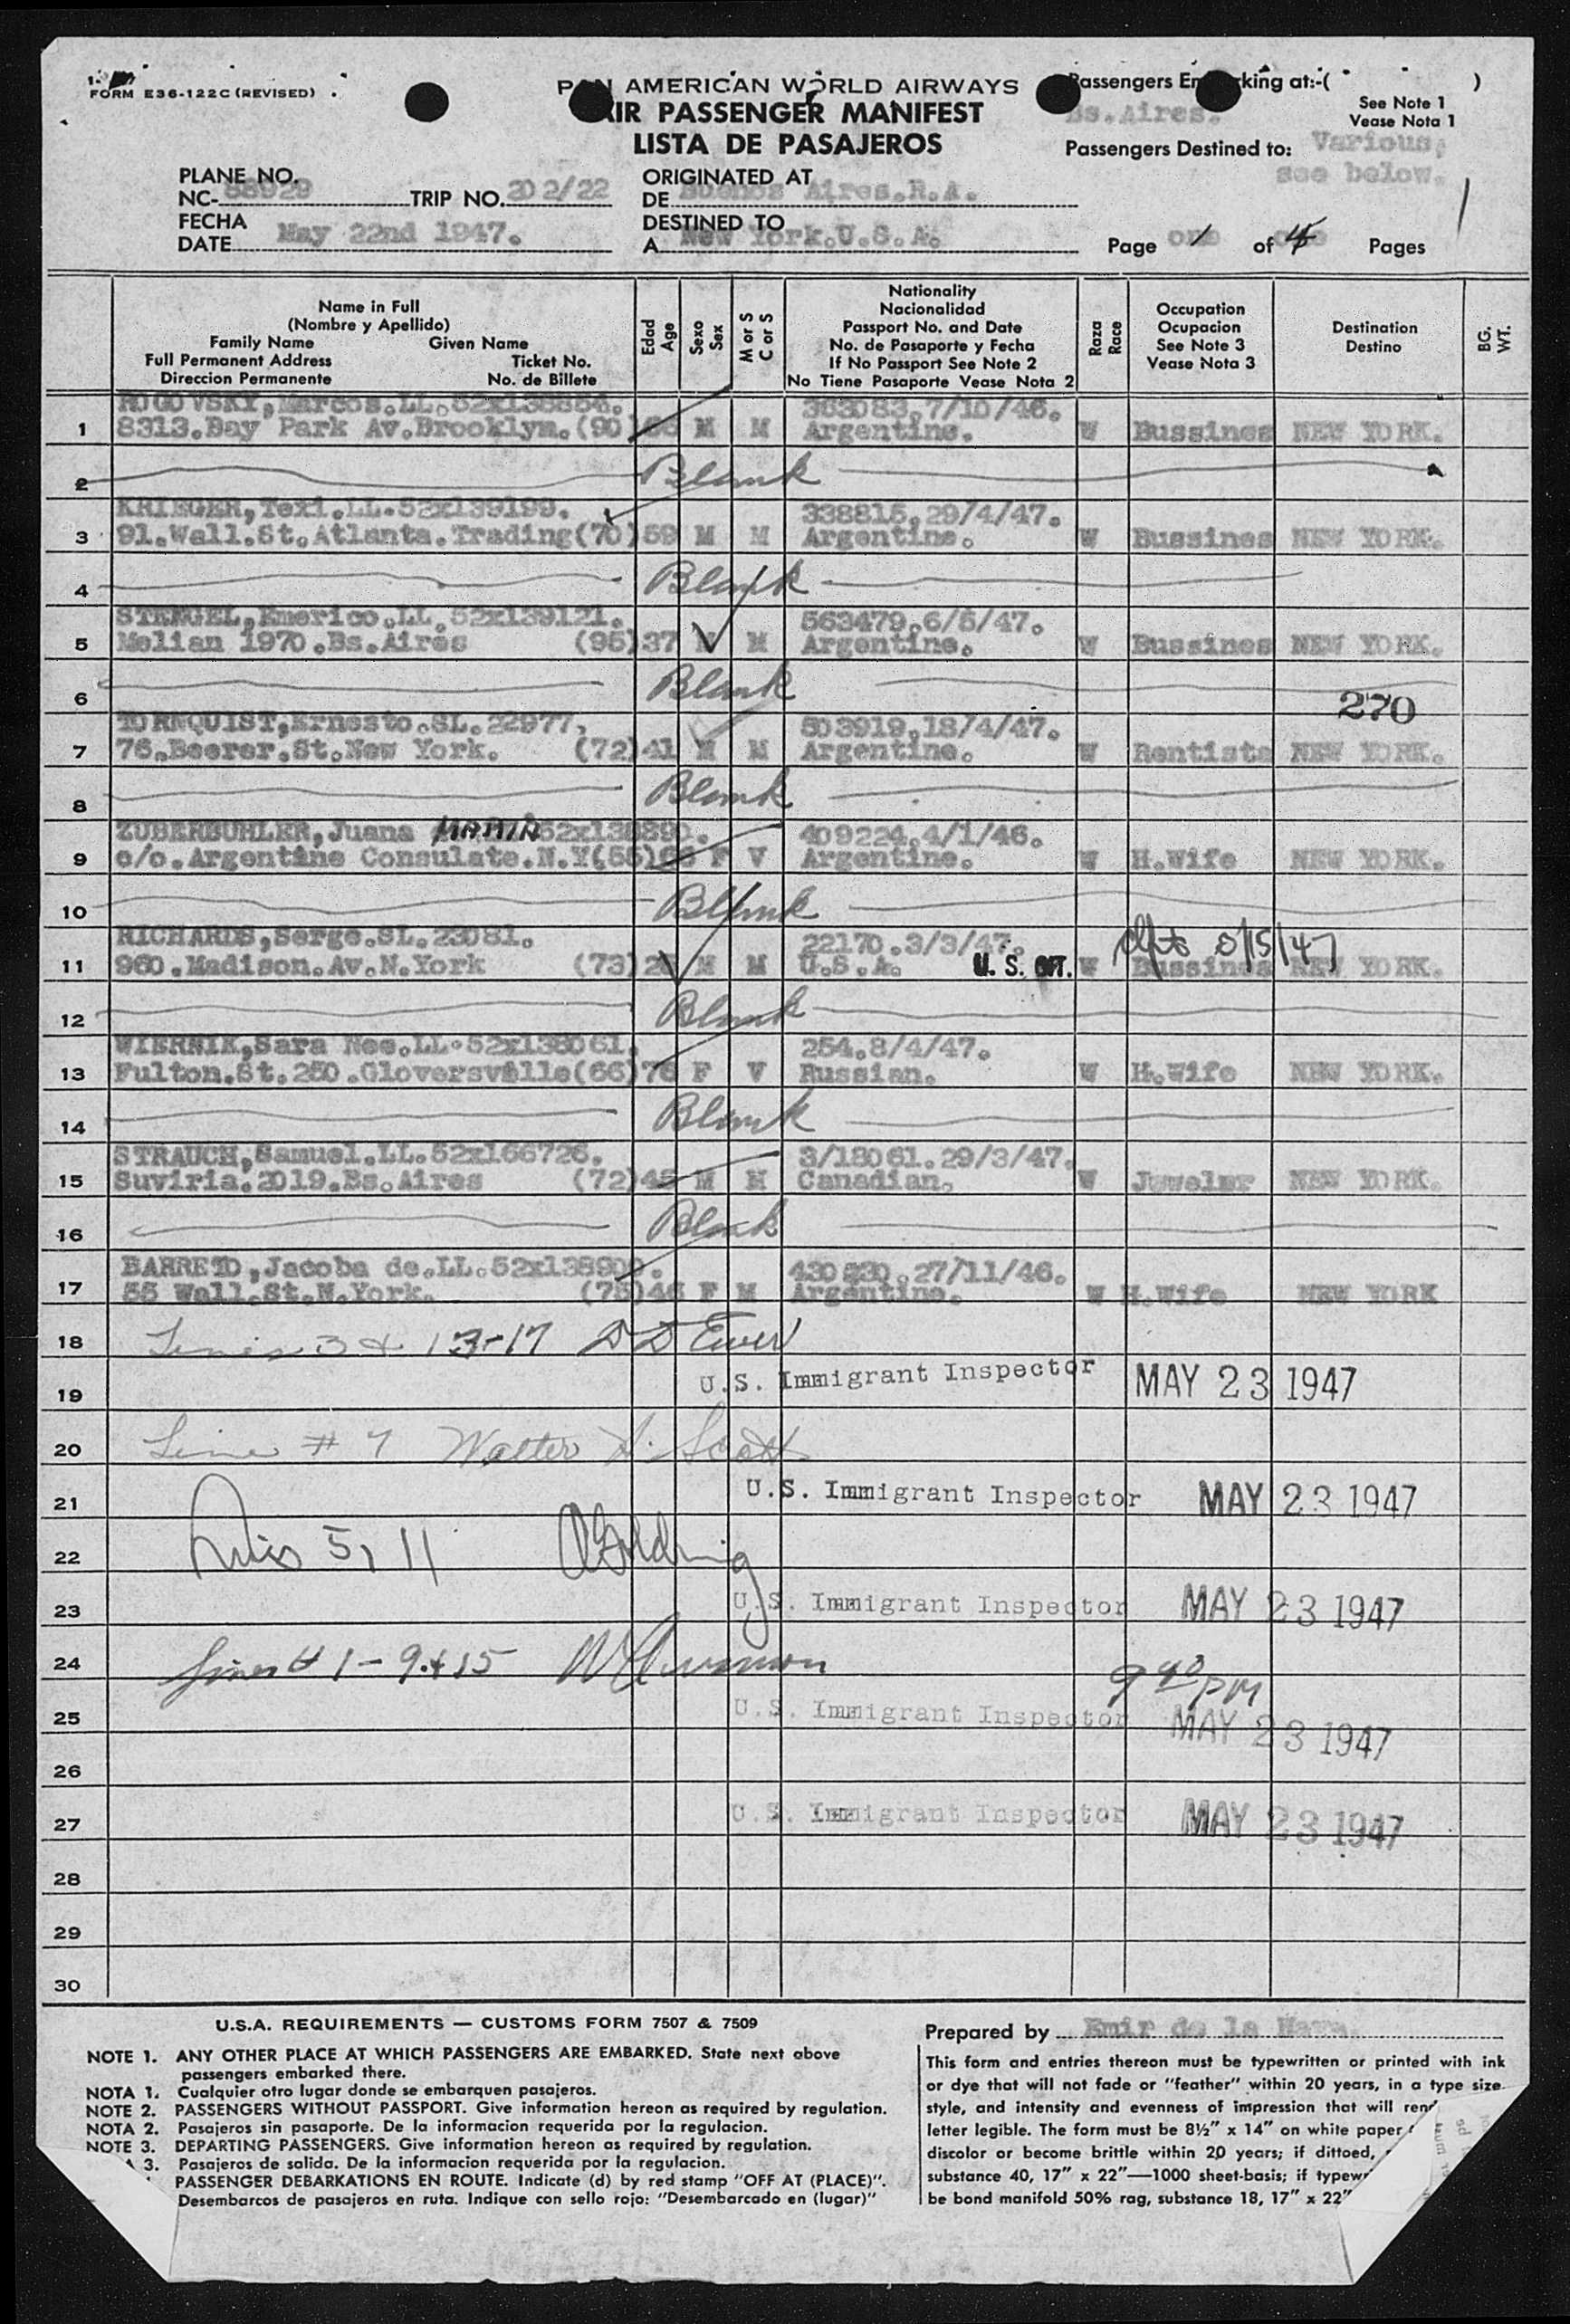 FORM E36-122C (REVISED)
PAN AMERICAN WORLD AIRWAYS
AIR PASSENGER MANIFEST
LISTA DE PASAJEROS
Passengers Embarking at:-( )
Bs.Aires.
See Note 1
Vease Nota 1
Passengers Destined to: Various,
see below.
PLANE NO.
NC- 88929 TRIP NO. 202/22
FECHA
DATE May 22nd 1947.
ORIGINATED AT
DE Buenos Aires.R.A.
DESTINED TO
A New York.U.S.A.
Page 1 of 4 Pages
Name in Full
(Nombre y Apellido)
Family Name Given Name
Full Permanent Address Ticket No.
Direccion Permanente No. de Billete
Edad
Age
Sexo
Sex
M or S
C or S
Nationality
Nacionalidad
Passport No. and Date
No. de Pasaporte y Fecha
If No Passport See Note 2
No Tiene Pasaporte Vease Nota 2
Raza
Race
Occupation
Ocupacion
See Note 3
Vease Nota 3
Destination
Destino
BG.
WT.
ROGOVSKY, Marcos.LL.52x138854. 363083.7/10/46.
1 8313.Bay Park Av.Brooklym.(90) M M Argentine. W Bussines NEW YORK.
2 Blank
KRIEGER, Texi.LL.52x139199. 338815.29/4/47.
3 91.Wall.St.Atlanta.Trading(70)59 M M Argentine. W Bussines NEW YORK.
4 Blank
STENGEL, Emerico.LL.52x139121. 563479.6/5/47.
5 Melian 1970.Bs.Aires (95)37 M M Argentine. W Bussines NEW YORK.
6 Blank
270
TORNQUIST, Ernesto.SL.22977. 503919.18/4/47.
7 76.Beerer.St.New York. (72)41 M M Argentine. W Rentista NEW YORK.
8 Blank
ZUBERBUHLER, Juana MARIA 409224.4/1/46.
9 c/o.Argentine Consulate.N.Y F V Argentine. W H.Wife NEW YORK.
10 Blank
RICHARDS, Serge.SL.23081. 22170.3/3/47. 5/15/47
11 960.Madison.Av.N.York (73) M M U.S.A. U. S. W Bussines NEW YORK.
12 Blank
WIERNIK, Sara Nee.LL.52x138061. 254.8/4/47.
13 Fulton.St.250.Gloversville(66)76 F V Russian. W H.Wife NEW YORK.
14 Blank
STRAUCH, Samuel.LL.52x166726. 3/18061.29/3/47.
15 Suviria.2019.Bs.Aires (72) M M Canadian. W Juweler NEW YORK.
16 Blank
BARRETO, Jacoba de.LL. 27/11/46.
17 55 Wall.St.N.York. (75)46 F M Argentine. W H.Wife NEW YORK
18 Lines 3 & 13-17
19 U.S. Immigrant Inspector MAY 23 1947
20 Line # 7 Walter Scott
21 U.S. Immigrant Inspector MAY 23 1947
22 Lines 5, 11
23 U.S. Immigrant Inspector MAY 23 1947
24 Lines # 1-9 & 15
9 40 PM
25 U.S. Immigrant Inspector MAY 23 1947
26
27 U.S. Immigrant Inspector MAY 23 1947
28
29
30
U.S.A. REQUIREMENTS — CUSTOMS FORM 7507 & 7509
NOTE 1. ANY OTHER PLACE AT WHICH PASSENGERS ARE EMBARKED. State next above
passengers embarked there.
NOTA 1. Cualquier otro lugar donde se embarquen pasajeros.
NOTE 2. PASSENGERS WITHOUT PASSPORT. Give information hereon as required by regulation.
NOTA 2. Pasajeros sin pasaporte. De la informacion requerida por la regulacion.
NOTE 3. DEPARTING PASSENGERS. Give information hereon as required by regulation.
A 3. Pasajeros de salida. De la informacion requerida por la regulacion.
PASSENGER DEBARKATIONS EN ROUTE. Indicate (d) by red stamp "OFF AT (PLACE)".
Desembarcos de pasajeros en ruta. Indique con sello rojo: "Desembarcado en (lugar)"
Prepared by Emir de la
This form and entries thereon must be typewritten or printed with ink
or dye that will not fade or "feather" within 20 years, in a type size
style, and intensity and evenness of impression that will rend
letter legible. The form must be 8½" x 14" on white paper
discolor or become brittle within 20 years; if dittoed,
substance 40, 17" x 22"—1000 sheet-basis; if typew
be bond manifold 50% rag, substance 18, 17" x 22"